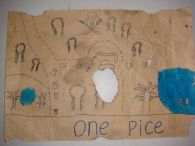 One Pice